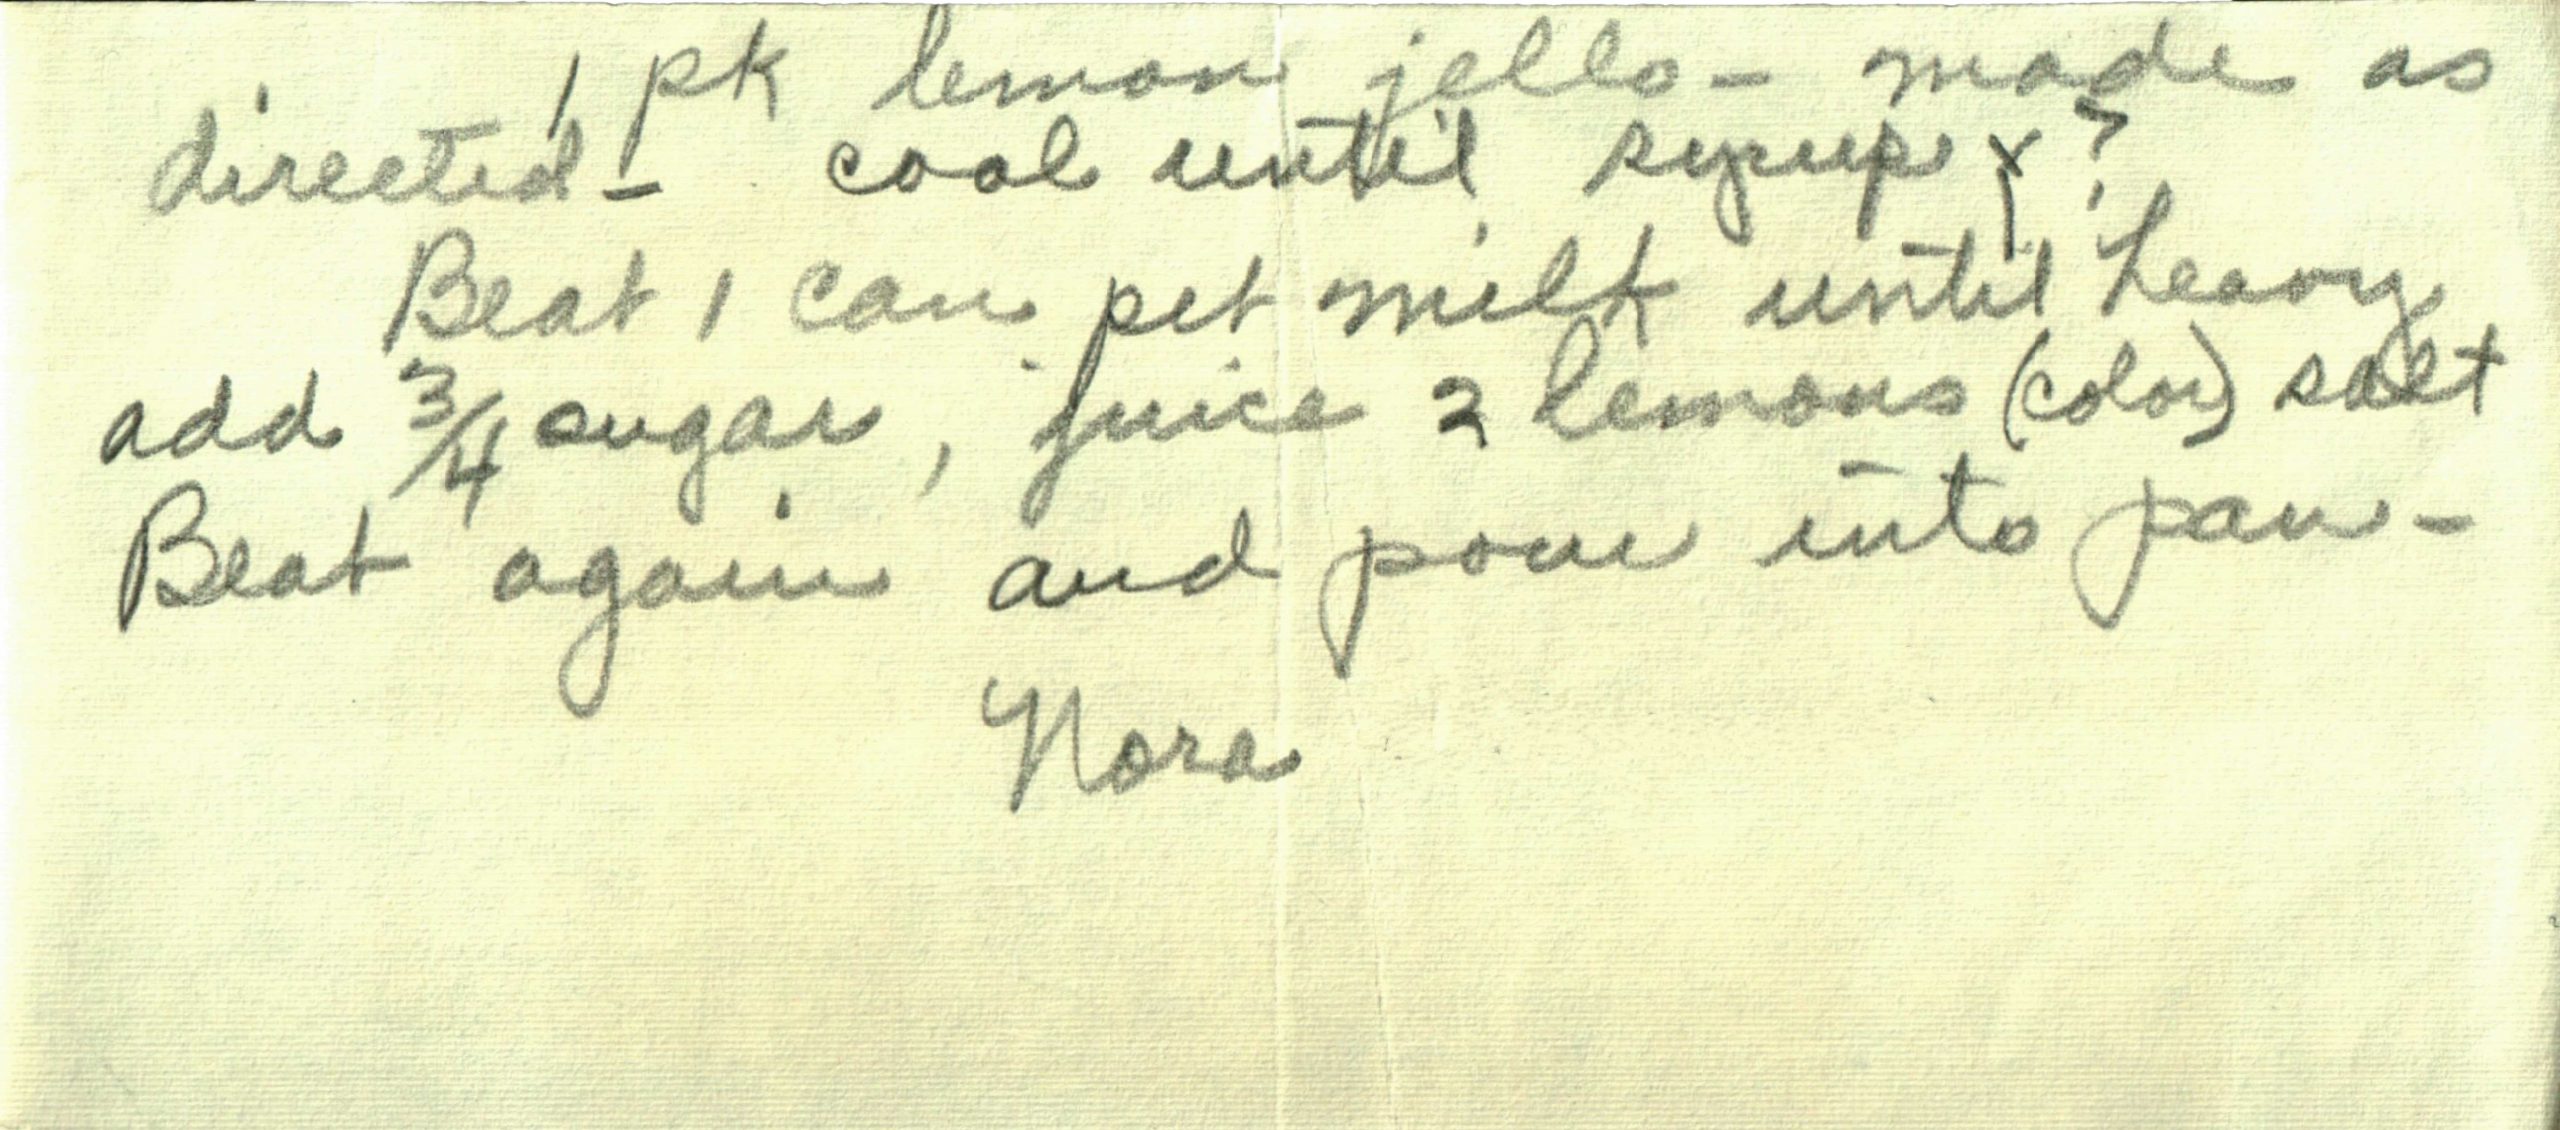 1 pk lemon jello - made as
directed - cool until syrupy?
Beat 1 can pet milk until heavy
add 3/4 sugar, juice 2 lemons (color) salt
Beat again and pour into pan -
Nora